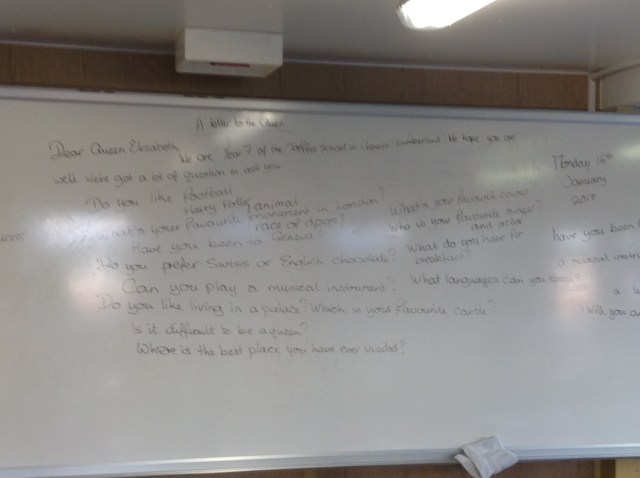 A letter to the Queen
Dear Queen Elizabeth,
We are Year 7 of the School in Geneva, Switzerland. We hope you are
well. We've got a lot of question to ask you
Do you like football
Harry Potter
animal
What's your favourite monument in London?
race of dogs?
Have you been to Geneva?
Do you prefer Swiss or English chocolate?
Can you play a musical instrument?
Do you like living in a palace? Which is your favourite castle?
Is it difficult to be a queen?
Where is the best place you have ever visited?
What's your favourite colour
Who is your favourite singer?
and actor
What do you have for
breakfast?
What languages can you speak?
Monday 16th
January
2017
have you been
a musical instru
a
Will you